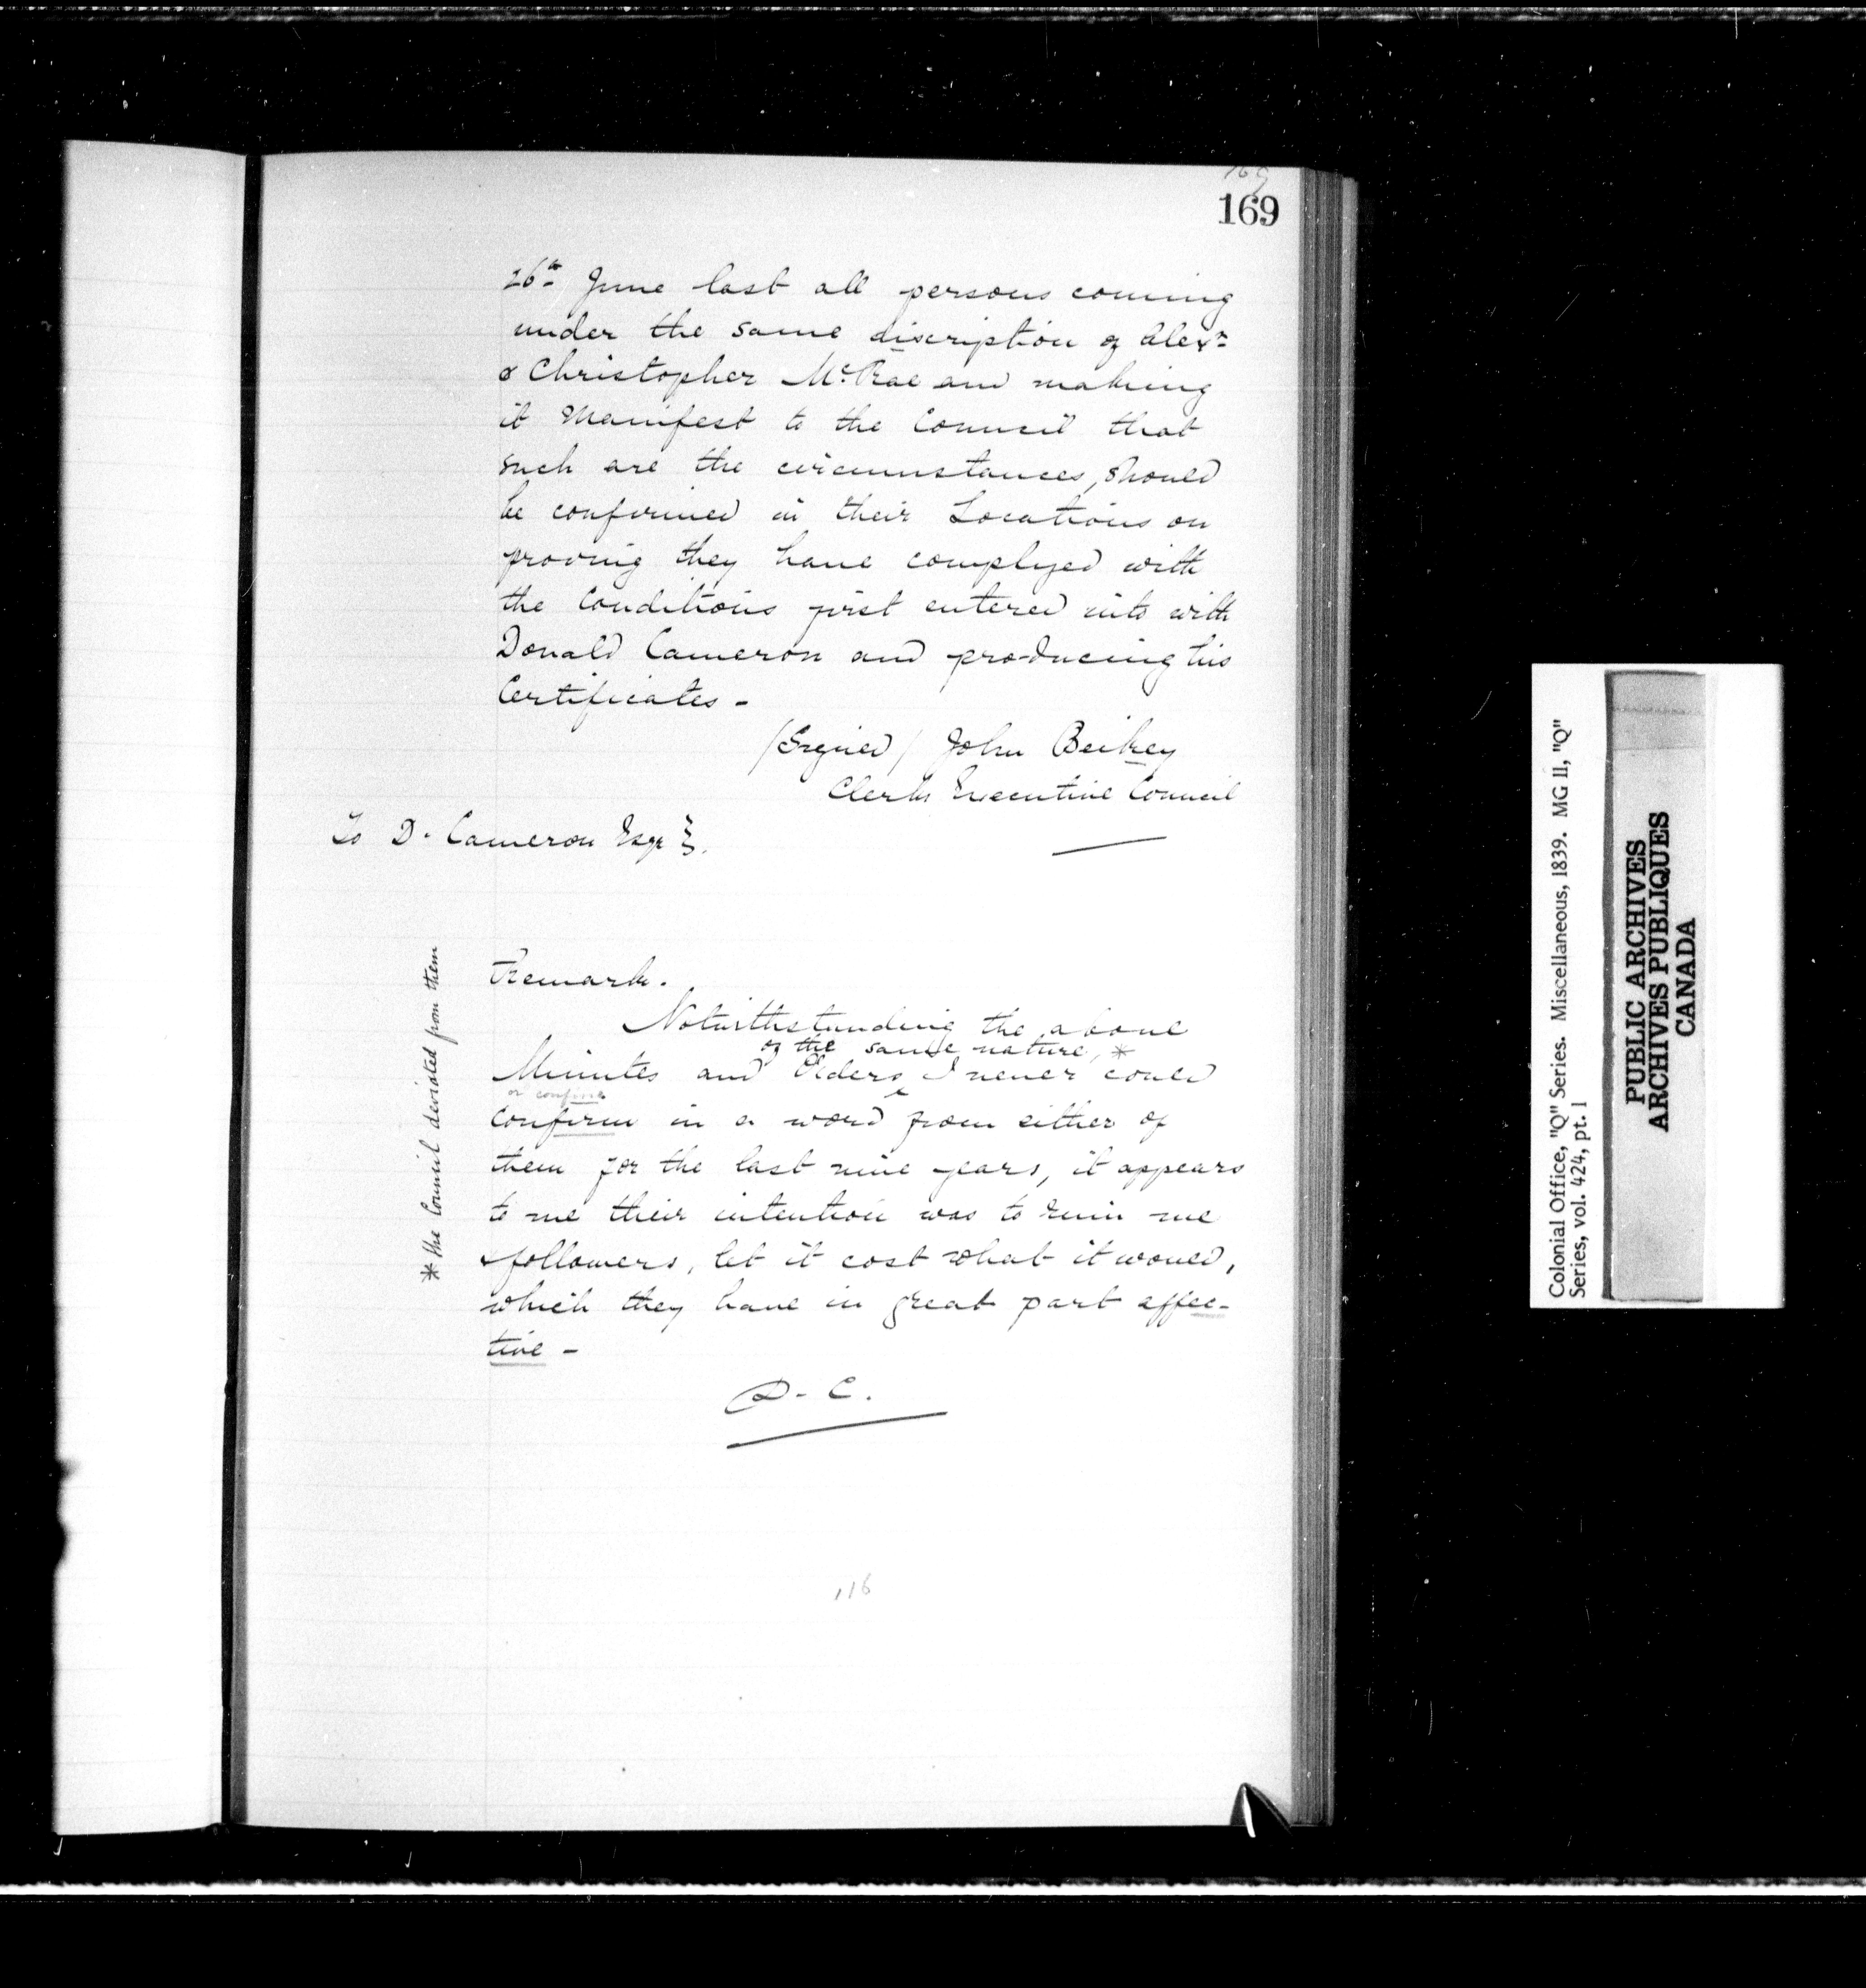 169
169
26th June last all persons coming
under the same discription of Alexr
& Christopher McRae and making
it Manifest to the Council that
such are the circumstances, should
be confirmed in their Locations on
proving they have complyed with
the Conditions first entered into with
Donald Cameron and producing his
Certificates -
(Signed) John Beikey
Clerk Executive Council
To D. Cameron Esqr
Remark.
Notwithstanding the above
of the same nature, *
Minutes and Orders I never could
or confine
confirm in a word from either of
them for the last nine years, it appears
to me their intention was to ruin me
& followers, let it cost what it would,
which they have in great part effec-
tive -
D. C.
* the Council deviated from them
116
Colonial Office, "Q" Series. Miscellaneous, 1839. MG 11, "Q"
Series, vol. 424, pt. 1
PUBLIC ARCHIVES
ARCHIVES PUBLIQUES
CANADA